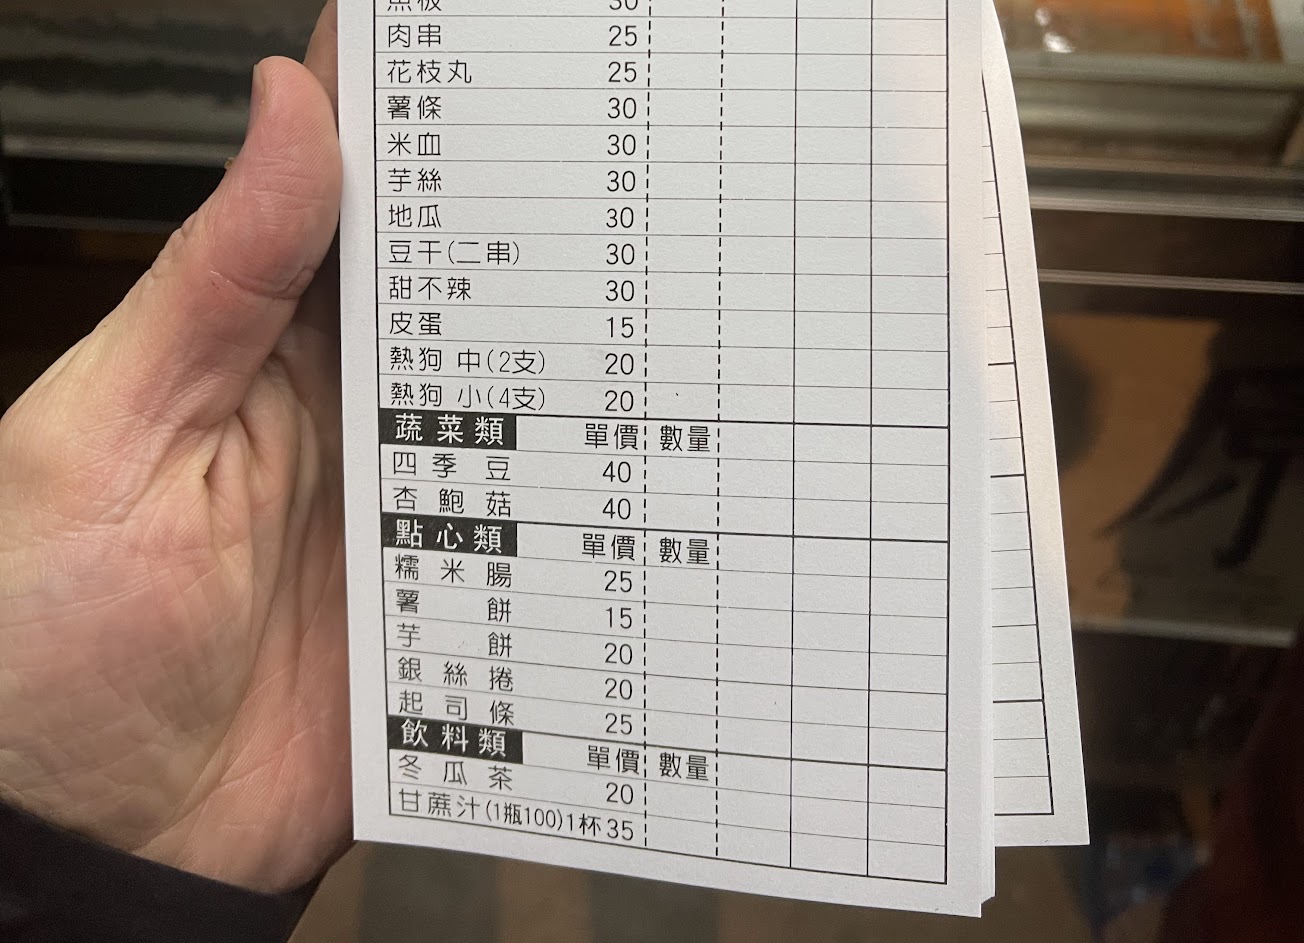 魚板 30
肉串 25
花枝丸 25
薯條 30
米血 30
芋絲 30
地瓜 30
豆干(二串) 30
甜不辣 30
皮蛋 15
熱狗 中(2支) 20
熱狗 小(4支) 20
蔬菜類 單價 數量
四季豆 40
杏鮑菇 40
點心類 單價 數量
糯米腸 25
薯餅 15
芋餅 20
銀絲捲 20
起司條 25
飲料類 單價 數量
冬瓜茶 20
甘蔗汁(1瓶100)1杯 35